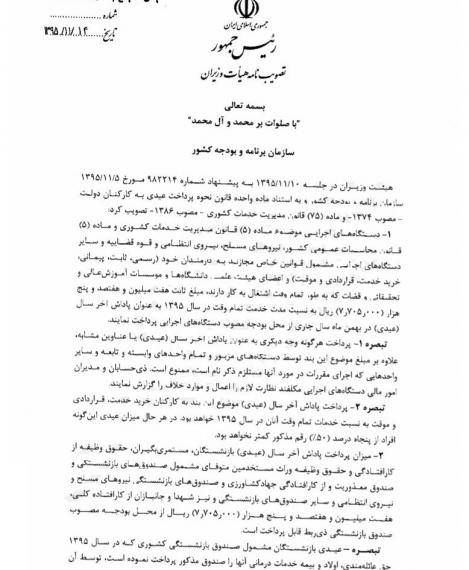 جمهوری اسلامی ایران
رئیس جمهور
تصویب نامه هیأت وزیران
شماره
تاریخ ۱۳۹۵/۱۱/۱۴
بسمه تعالی
"با صلوات بر محمد و آل محمد"
سازمان برنامه و بودجه کشور
هیئت وزیران در جلسه ۱۳۹۵/۱۱/۱۰ به پیشنهاد شماره ۹۸۲۲۱۴ مورخ ۱۳۹۵/۱۱/۵
سازمان برنامه و بودجه کشور و به استناد ماده واحده قانون نحوه پرداخت عیدی به کارکنان دولت
- مصوب ۱۳۷۴- و ماده (۷۵) قانون مدیریت خدمات کشوری - مصوب ۱۳۸۶- تصویب کرد:
۱- دستگاه‌های اجرایی موضوع ماده (۵) قانون مدیریت خدمات کشوری و ماده (۵)
قانون محاسبات عمومی کشور، نیروهای مسلح، نیروی انتظامی و قوه قضاییه و سایر
دستگاه‌های اجرایی مشمول قوانین خاص مجازند به کارمندان خود (رسمی، ثابت، پیمانی،
خرید خدمت، قراردادی و موقت) و اعضای هیئت علمی دانشگاه‌ها و موسسات آموزش‌عالی و
تحقیقاتی و قضات که به طور تمام وقت اشتغال به کار دارند، مبلغ ثابت هفت میلیون و هفتصد و پنج
هزار (۷٫۷۰۵٫۰۰۰) ریال به نسبت مدت خدمت تمام وقت در سال ۱۳۹۵ به عنوان پاداش آخر سال
(عیدی) در بهمن ماه سال جاری از محل بودجه مصوب دستگاه‌های اجرایی پرداخت نمایند.
تبصره ۱- پرداخت هرگونه وجه دیگری به عنوان پاداش آخر سال (عیدی) یا عناوین مشابه،
علاوه بر مبلغ موضوع این بند توسط دستگاه‌های مزبور و تمام واحدهای وابسته و تابعه و سایر
واحدهایی که اجرای مقررات در مورد آنها مستلزم ذکر نام است، ممنوع است. ذی‌حسابان و مدیران
امور مالی دستگاه‌های اجرایی مکلفند نظارت لازم را اعمال و موارد خلاف را گزارش نمایند.
تبصره ۲- پرداخت پاداش آخر سال (عیدی) موضوع این بند به کارکنان خرید خدمت، قراردادی
و موقت به نسبت خدمات تمام وقت آنان در سال ۱۳۹۵ خواهد بود. در هر حال میزان عیدی این‌گونه
افراد از پنجاه درصد (۵۰٪) رقم مذکور کمتر نخواهد بود.
۲- میزان پرداخت پاداش آخر سال (عیدی) بازنشستگان، مستمری‌بگیران، حقوق وظیفه از
کارافتادگی و حقوق وظیفه وراث مستخدمین متوفای مشمول صندوق‌های بازنشستگی و
صندوق معذوریت و از کارافتادگی جهادکشاورزی و صندوق‌های بازنشستگی نیروهای مسلح و
نیروی انتظامی و سایر صندوق‌های بازنشستگی و نیز شهدا و جانبازان از کارافتاده کلی،
هفت میلیون و هفتصد و پنج هزار (۷٫۷۰۵٫۰۰۰) ریال از محل بودجه مصوب
صندوق بازنشستگی ذی‌ربط قابل پرداخت است.
تبصره - عیدی بازنشستگان مشمول صندوق بازنشستگی کشوری که در سال ۱۳۹۵
حق عائله‌مندی، اولاد و بیمه خدمات درمانی آنها را صندوق مذکور پرداخت نموده است، توسط آن